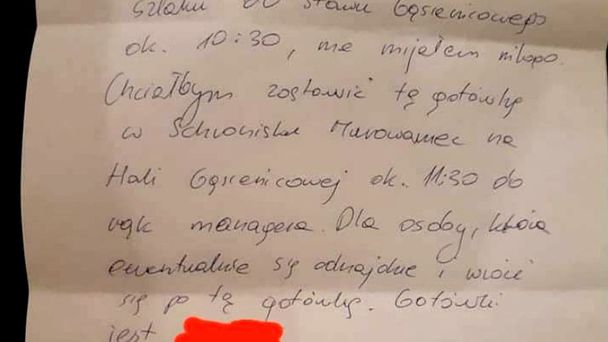 szlaku do stawu Gąsienicowego
ok. 10:30, nie mijałem nikogo.
Chciałbym zostawić tą gotówkę
w Schronisku Murowaniec na
Hali Gąsienicowej ok. 11:30 do
rąk managera. Dla osoby, która
ewentualnie się odnajdzie i wróci
się po tą gotówkę. Gotówki
jest